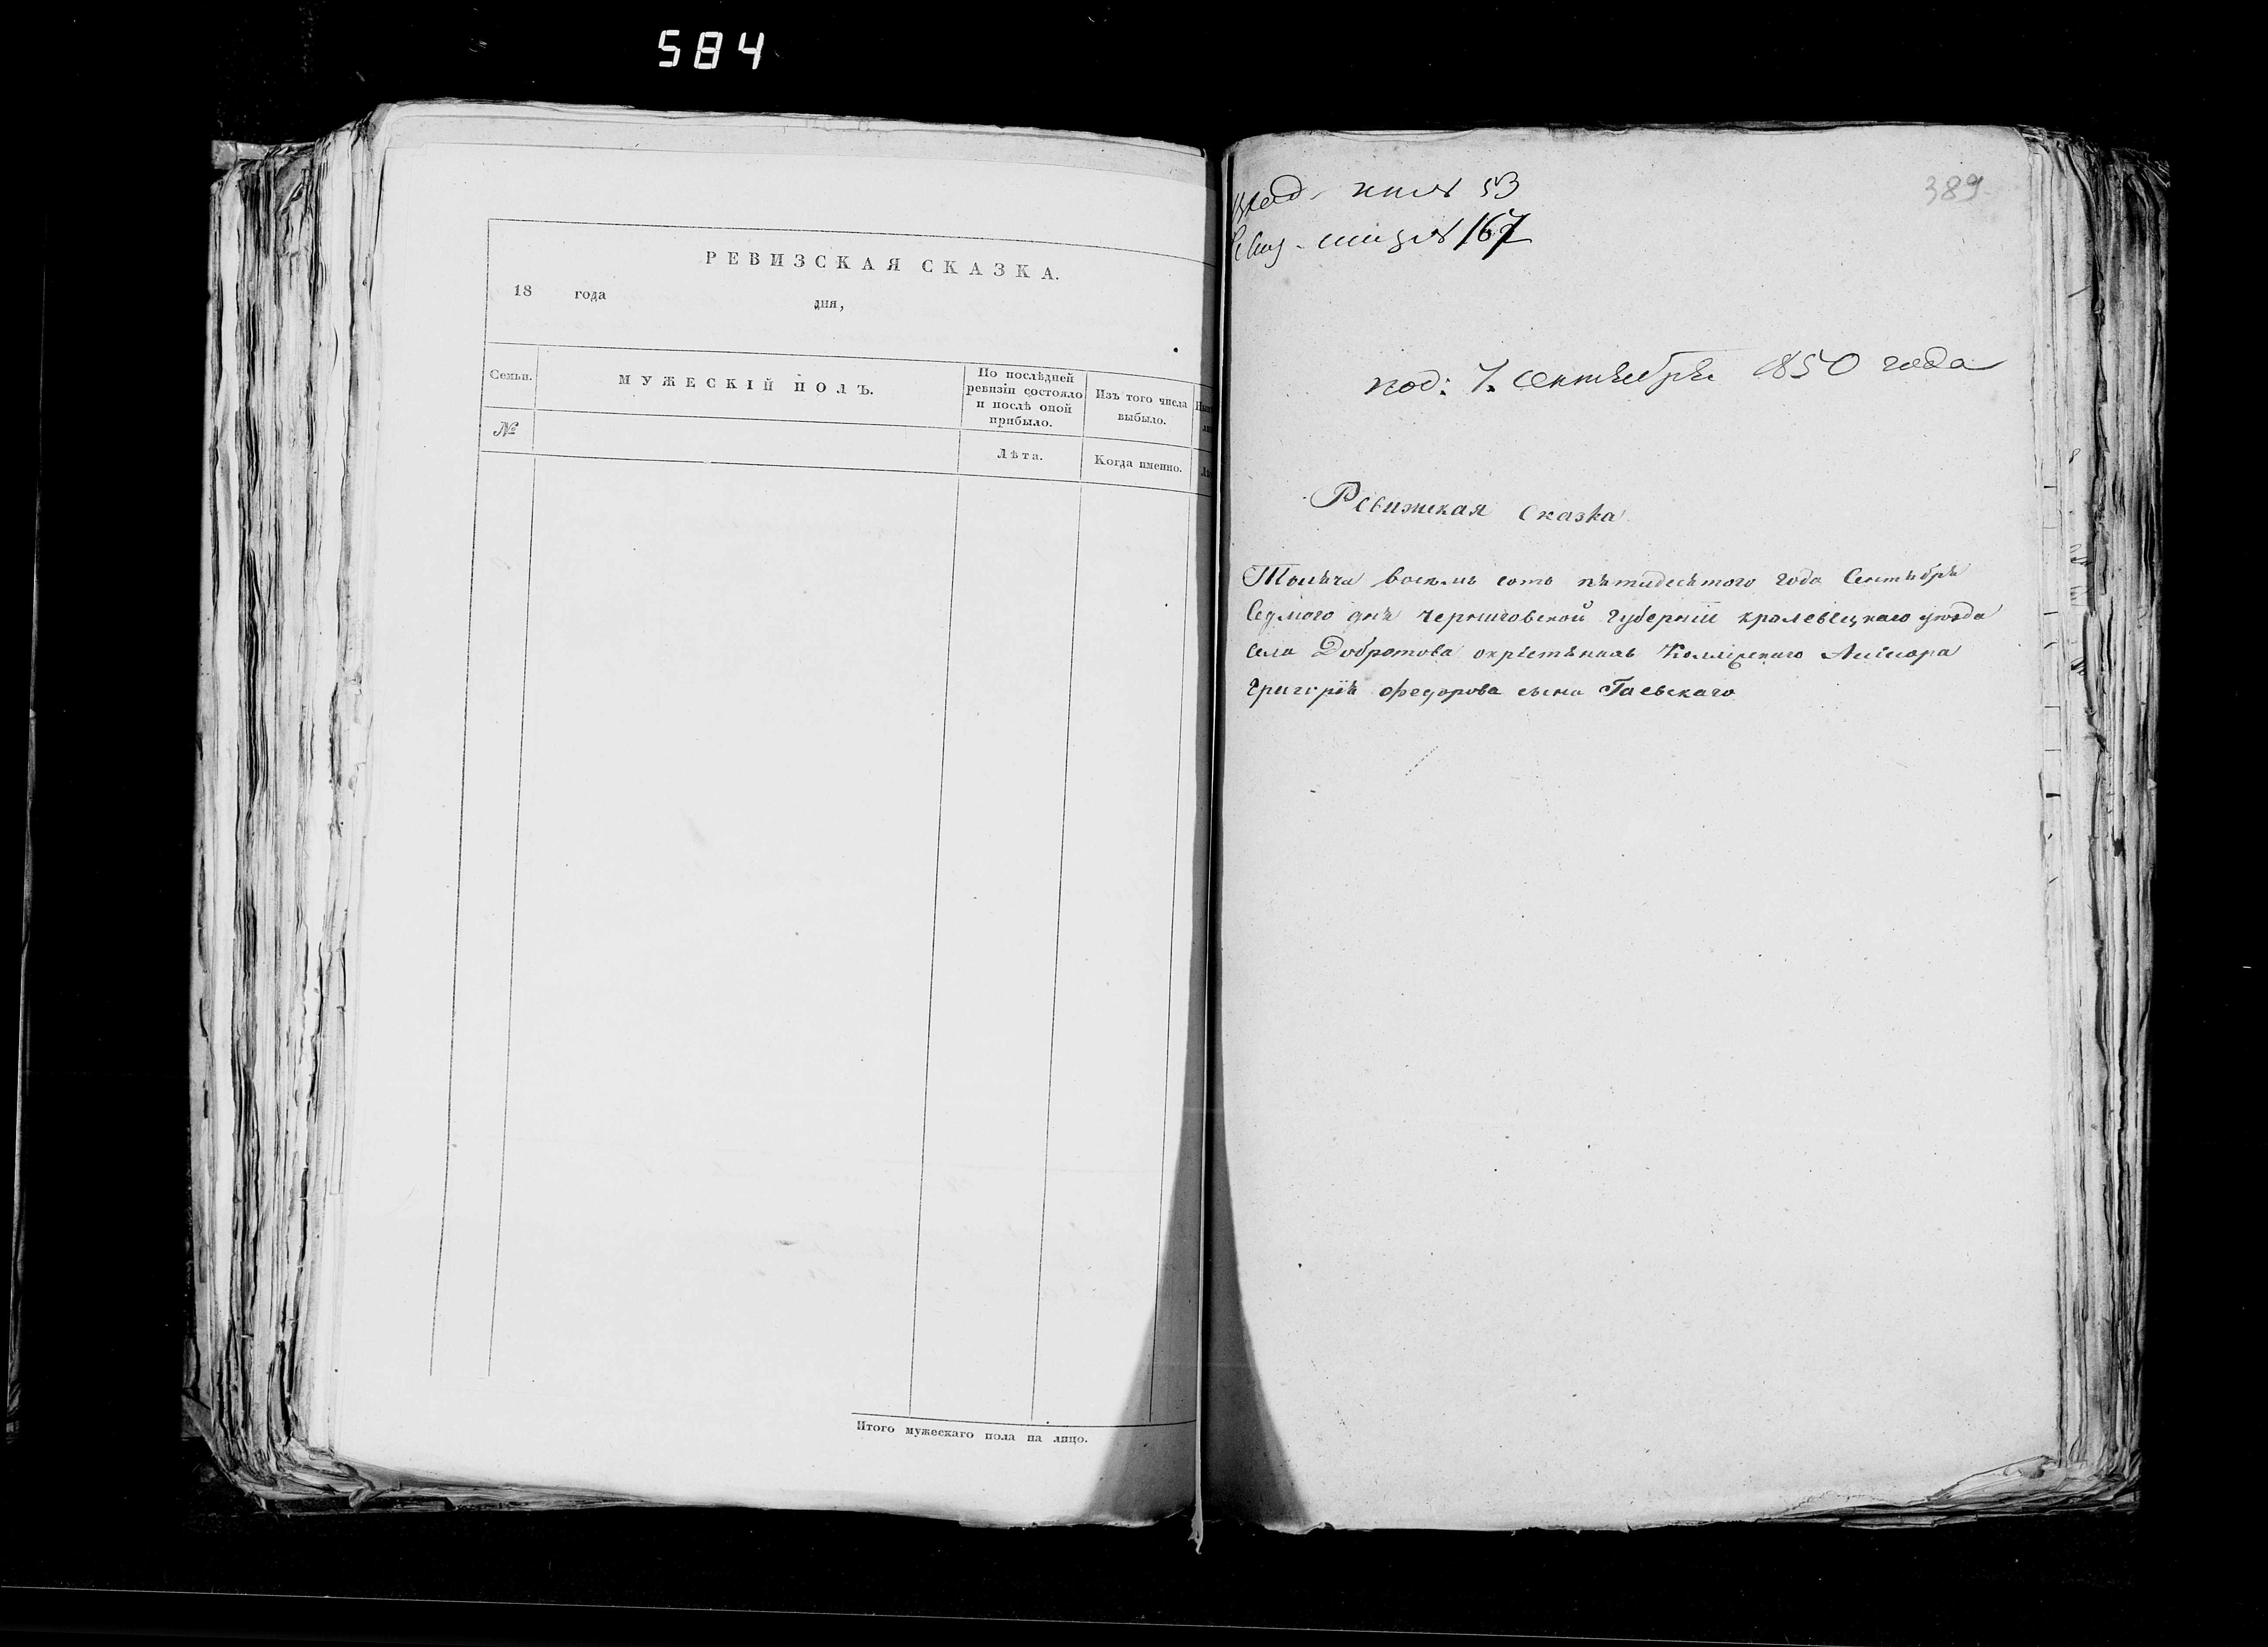 584
РЕВИЗСКАЯ СКАЗКА.
18 года дня,
Семьи.
МУЖЕСКІЙ ПОЛЪ.
По послѣдней
ревизіи состояло
и послѣ оной
прибыло.
Изъ того числа
выбыло.
№
Лѣта.
Когда именно.
Итого мужескаго пола на лицо.
389
53
167
под: 7. Сентября 1850 года
Ревижская Сказка
Тысяча восемь сотъ пятидесятого года Сентября
Седмого дня Черниговской Губерніи Кролевецкаго уезда
села Добротова Колежскаго Асесора
Григорія Федорова сына Гаевскаго